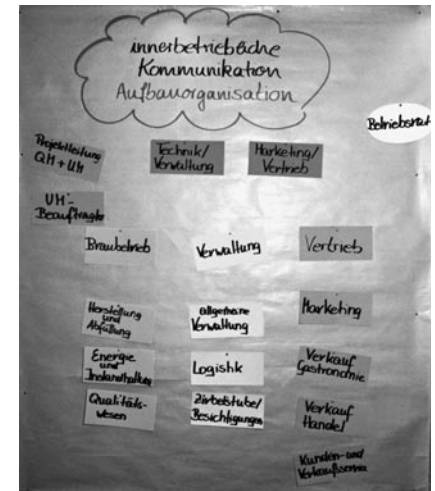 innerbetriebliche
Kommunikation
Aufbauorganisation
Betriebsrat
Projektleitung
QM + UM
Technik/
Verwaltung
Marketing/
Vertrieb
UM-
Beauftragte
Braubetrieb
Verwaltung
Vertrieb
Herstellung
und
Abfüllung
allgemeine
Verwaltung
Marketing
Energie
und
Instandhaltung
Logistik
Verkauf
Gastronomie
Qualitäts-
wesen
Zirbelstube/
Besichtigungen
Verkauf
Handel
Kunden- und
Verkaufsservice